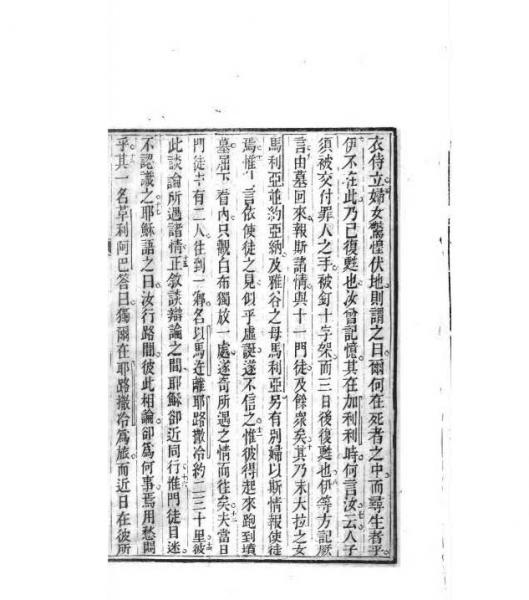 衣侍立婦女驚惶伏地則謂之曰爾何在死者之中而尋生者乎
伊不在此乃已復甦也汝曾記憶其在加利利時何言汝云人子
須被交付罪人之手被釘十字架而三日後復甦也伊等方記厥
言由墓回來報斯諸情與十一門徒及餘衆矣其乃末大拉之女
馬利亞並約亞納及雅谷之母馬利亞另有別婦以斯情報使徒
焉惟言依使徒之見似乎虛誕遂不信之惟彼得起來跑到墳
墓屈下看內只觀白布獨放一處遂奇所遇之情而往矣夫當日
門徒中有二人往到一鄉名以馬迕離耶路撒冷約二三十里彼
此談論所遇諸情正敘談辯論之間耶穌卻近同行惟門徒目迷
不認識之耶穌語之曰汝行路間彼此相論卻爲何事焉用愁悶
乎其一名革利阿巴答曰獨爾在耶路撒冷爲旅而近日在彼所